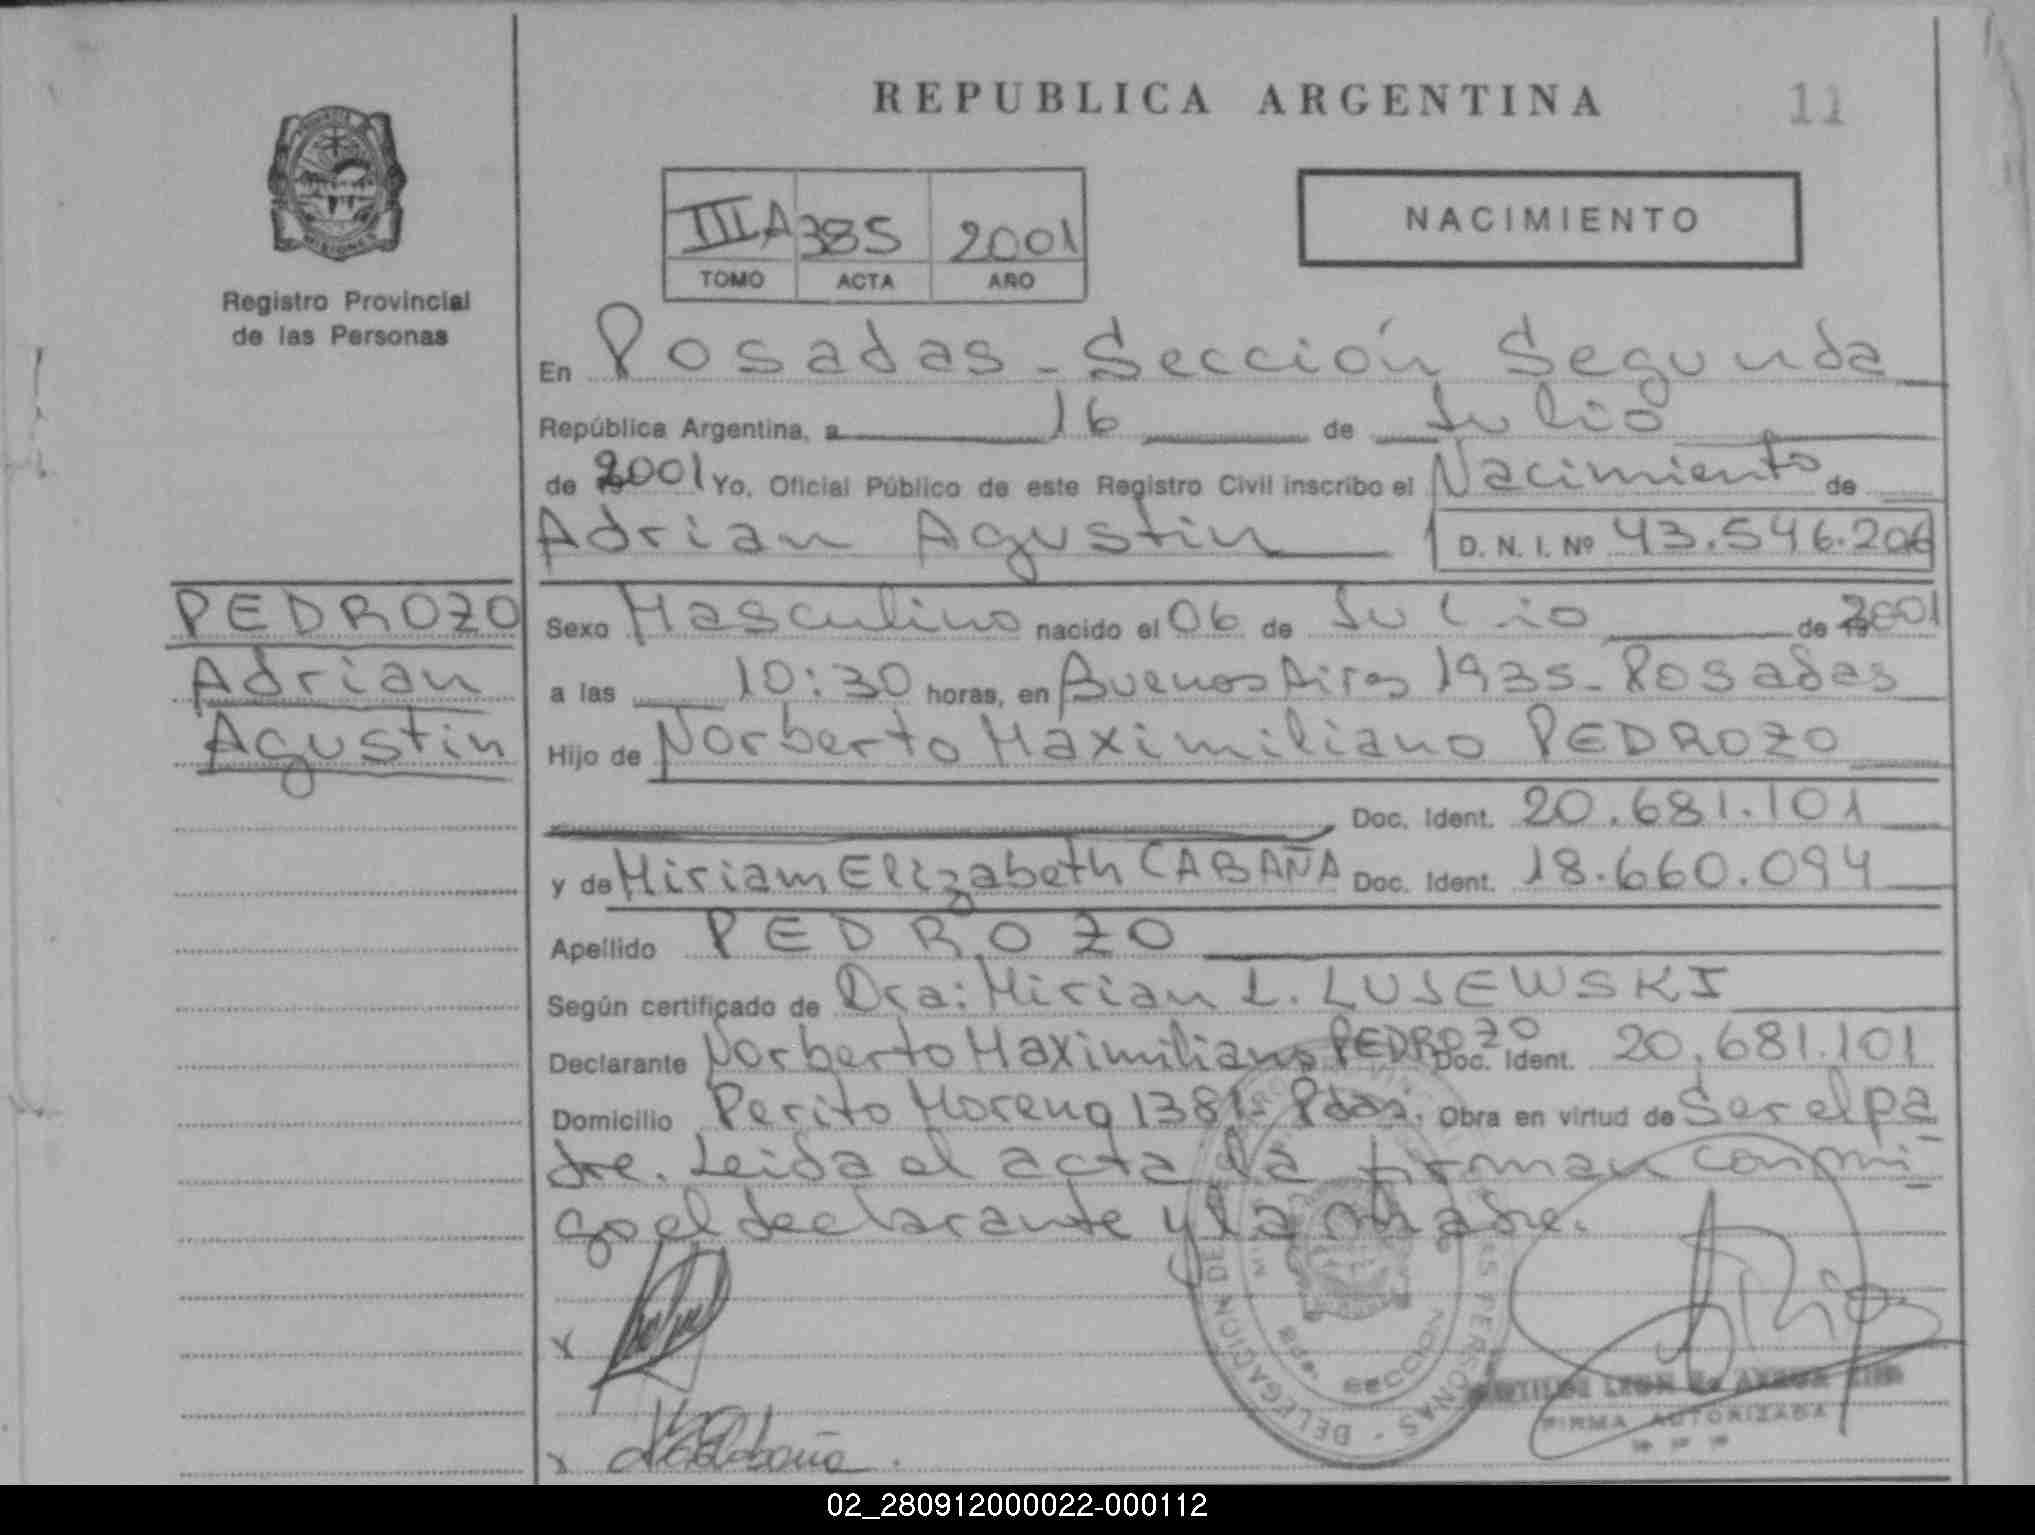 REPUBLICA ARGENTINA
11
MISIONES
Registro Provincial
de las Personas
IIIA 385 2001
TOMO ACTA AÑO
NACIMIENTO
En Posadas - Sección Segunda
República Argentina, a 16 de Julio
de 2001 Yo, Oficial Público de este Registro Civil inscribo el Nacimiento de
Adrian Agustin D. N. I. Nº 43.546.206
PEDROZO
Adrian
Agustin
Sexo Masculino nacido el 06 de Julio de 2001
a las 10:30 horas, en Buenos Aires 1935 - Posadas
Hijo de Norberto Maximiliano PEDROZO
Doc. Ident. 20.681.101
y de Miriam Elizabeth CABAÑA Doc. Ident. 18.660.094
Apellido PEDROZO
Según certificado de Dra: Mirian L. LUJEWSKI
Declarante Norberto Maximiliano PEDROZO Doc. Ident. 20.681.101
Domicilio Perito Moreno 1381- Pdas. Obra en virtud de Ser el pa
dre. Leida el acta la firman conmi
go el declarante y la madre.
x
x
DELEGACION DE
LAS PERSONAS
2da. SECCION
FIRMA AUTORIZADA
02_280912000022-000112